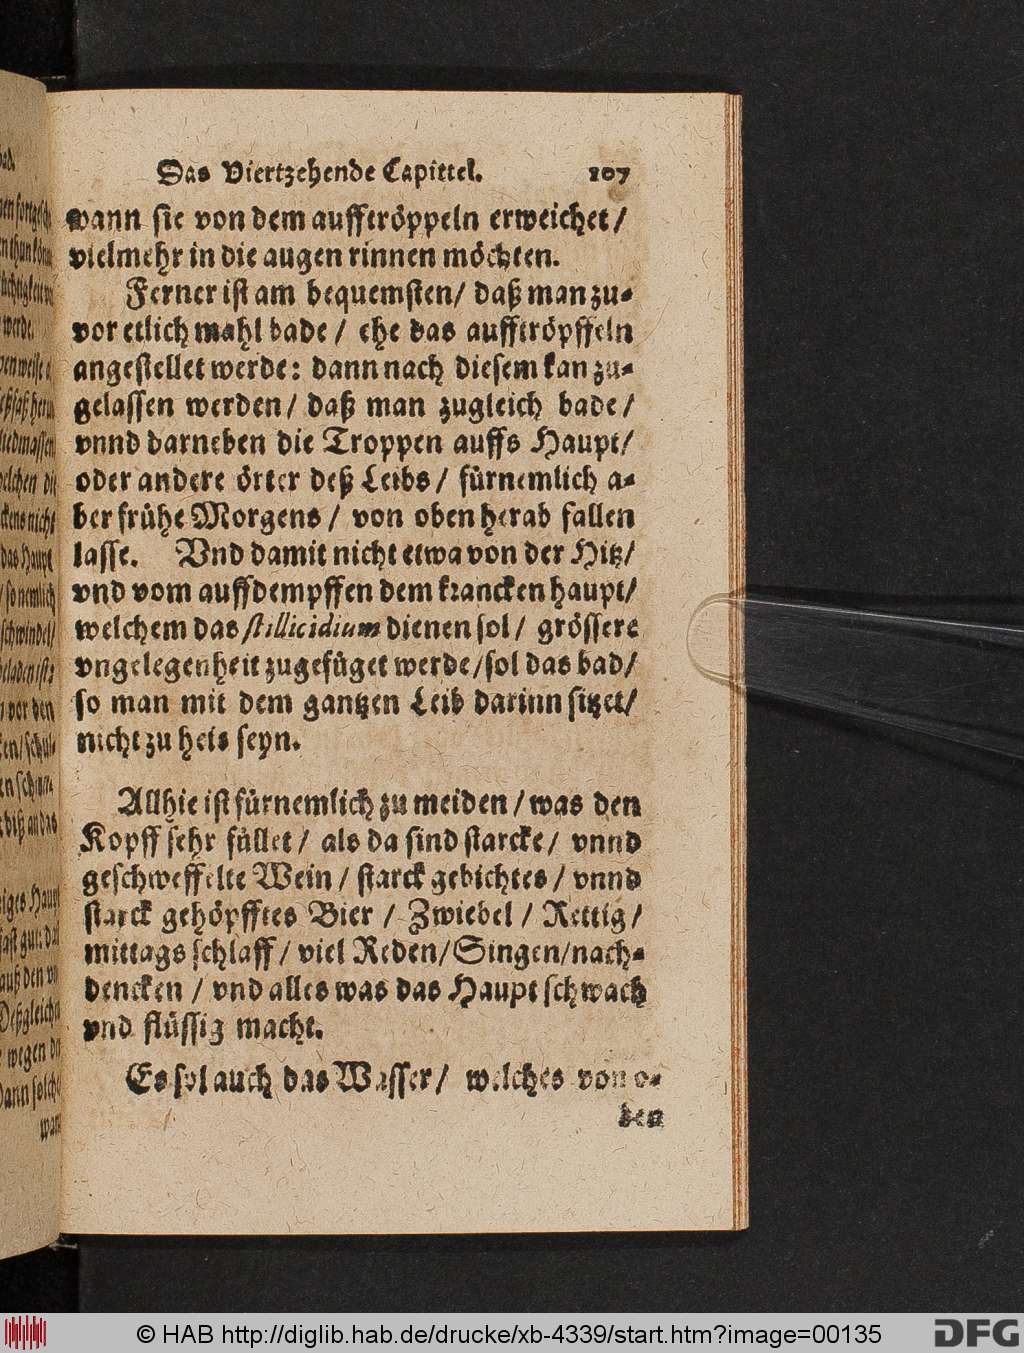 Das Viertzehende Capittel. 107
wann sie von dem aufftröppeln erweichet/
vielmehr in die augen rinnen möchten.
Ferner ist am bequemsten/ daß man zu-
vor etlich mahl bade/ ehe das aufftröpffeln
angestellet werde: dann nach diesem kan zu-
gelassen werden/ daß man zugleich bade/
vnnd darneben die Troppen auffs Haupt/
oder andere örter deß Leibs/ fürnemlich a-
ber frühe Morgens/ von oben herab fallen
lasse. Vnd damit nicht etwa von der Hitz/
vnd vom auffdempffen dem krancken haupt/
welchem das stillicidium dienen sol/ grössere
vngelegenheit zugefüget werde/ sol das bad/
so man mit dem gantzen Leib darinn sitzet/
nicht zu heis seyn.
Allhie ist fürnemlich zu meiden/ was den
Kopff sehr füllet/ als da sind starcke/ vnnd
geschweffelte Wein/ starck gebichtes/ vnnd
starck gehöpfftes Bier/ Zwiebel/ Rettig/
mittags schlaff/ viel Reden/ Singen/ nach-
dencken/ vnd alles was das Haupt schwach
vnd flüssig macht.
Es sol auch das Wasser/ welches von o-
ben
© HAB http://diglib.hab.de/drucke/xb-4339/start.htm?image=00135
DFG